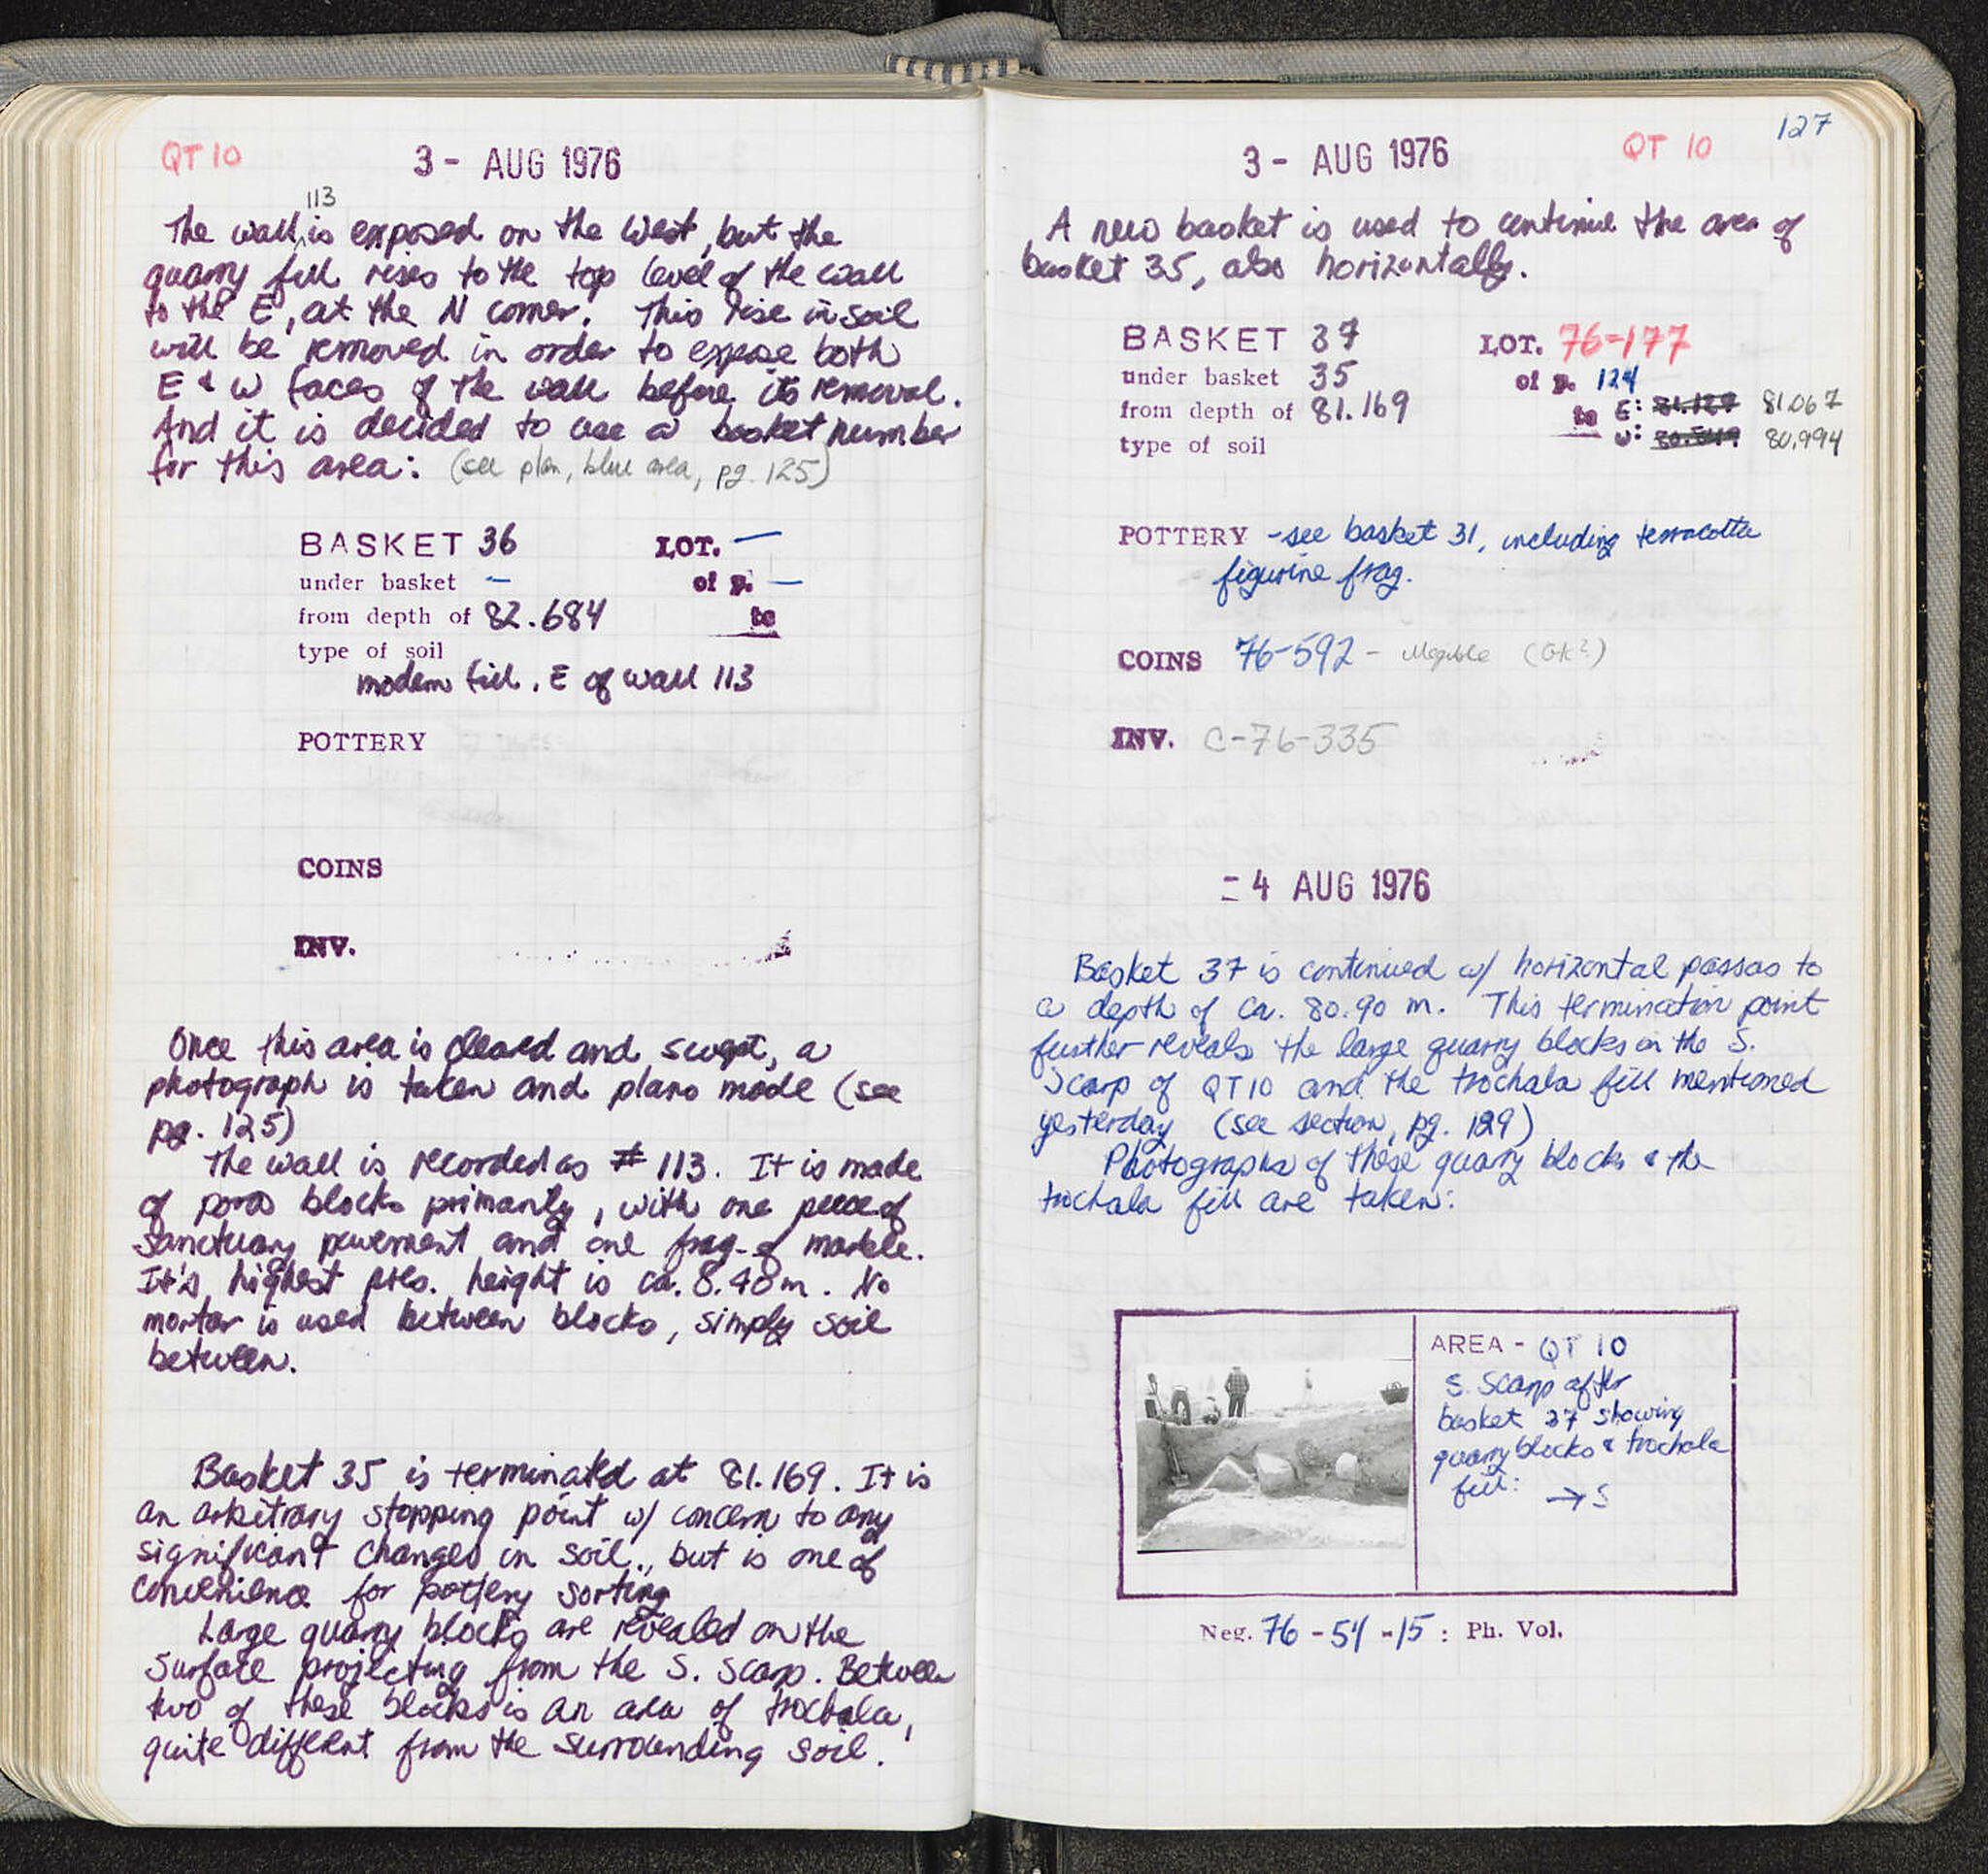 QT 10
3 - AUG 1976
113
The wall ^ is exposed on the West, but the
quarry fill rises to the top level of the wall
to the E, at the N corner. This rise in soil
will be removed in order to expose both
E & W faces of the wall before its removal.
And it is decided to use a basket number
for this area: (see plan, blue area, pg. 125)
BASKET 36
LOT. —
under basket —
of p. —
from depth of 82.684
to
type of soil
modern fill. E of wall 113
POTTERY
COINS
INV.
Once this area is cleared and swept, a
photograph is taken and plans made (see
pg. 125)
The wall is recorded as # 113. It is made
of poros blocks primarily, with one piece of
Sanctuary pavement and one frag. of marble.
It's highest pres. height is ca. 8.40 m. No
mortar is used between blocks, simply soil
between.
Basket 35 is terminated at 81.169. It is
an arbitrary stopping point w/ concern to any
significant changes in soil., but is one of
convenience for pottery sorting
Large quarry blocks are revealed on the
surface projecting from the S. Scarp. Between
two of these blocks is an area of trochala,
quite different from the surrounding soil.
127
3 - AUG 1976
QT 10
A new basket is used to continue the area of
basket 35, also horizontally.
BASKET 37
LOT. 76-177
under basket 35
of p. 124
from depth of 81.169
to E: 81.067
W: 80.994
type of soil
POTTERY - see basket 31, including terracotta
figurine frag.
COINS 76-592 - illegible (Gk?)
INV. C-76-335
- 4 AUG 1976
Basket 37 is continued w/ horizontal passas to
a depth of ca. 80.90 m. This termination point
further reveals the large quarry blocks in the S.
Scarp of QT10 and the trochala fill mentioned
yesterday (see section, pg. 129)
Photographs of these quarry blocks & the
trochala fill are taken:
AREA - QT 10
S. Scarp after
basket 37 showing
quarry blocks & trochala
fill: → S
Neg. 76 - 54 - 15 : Ph. Vol.